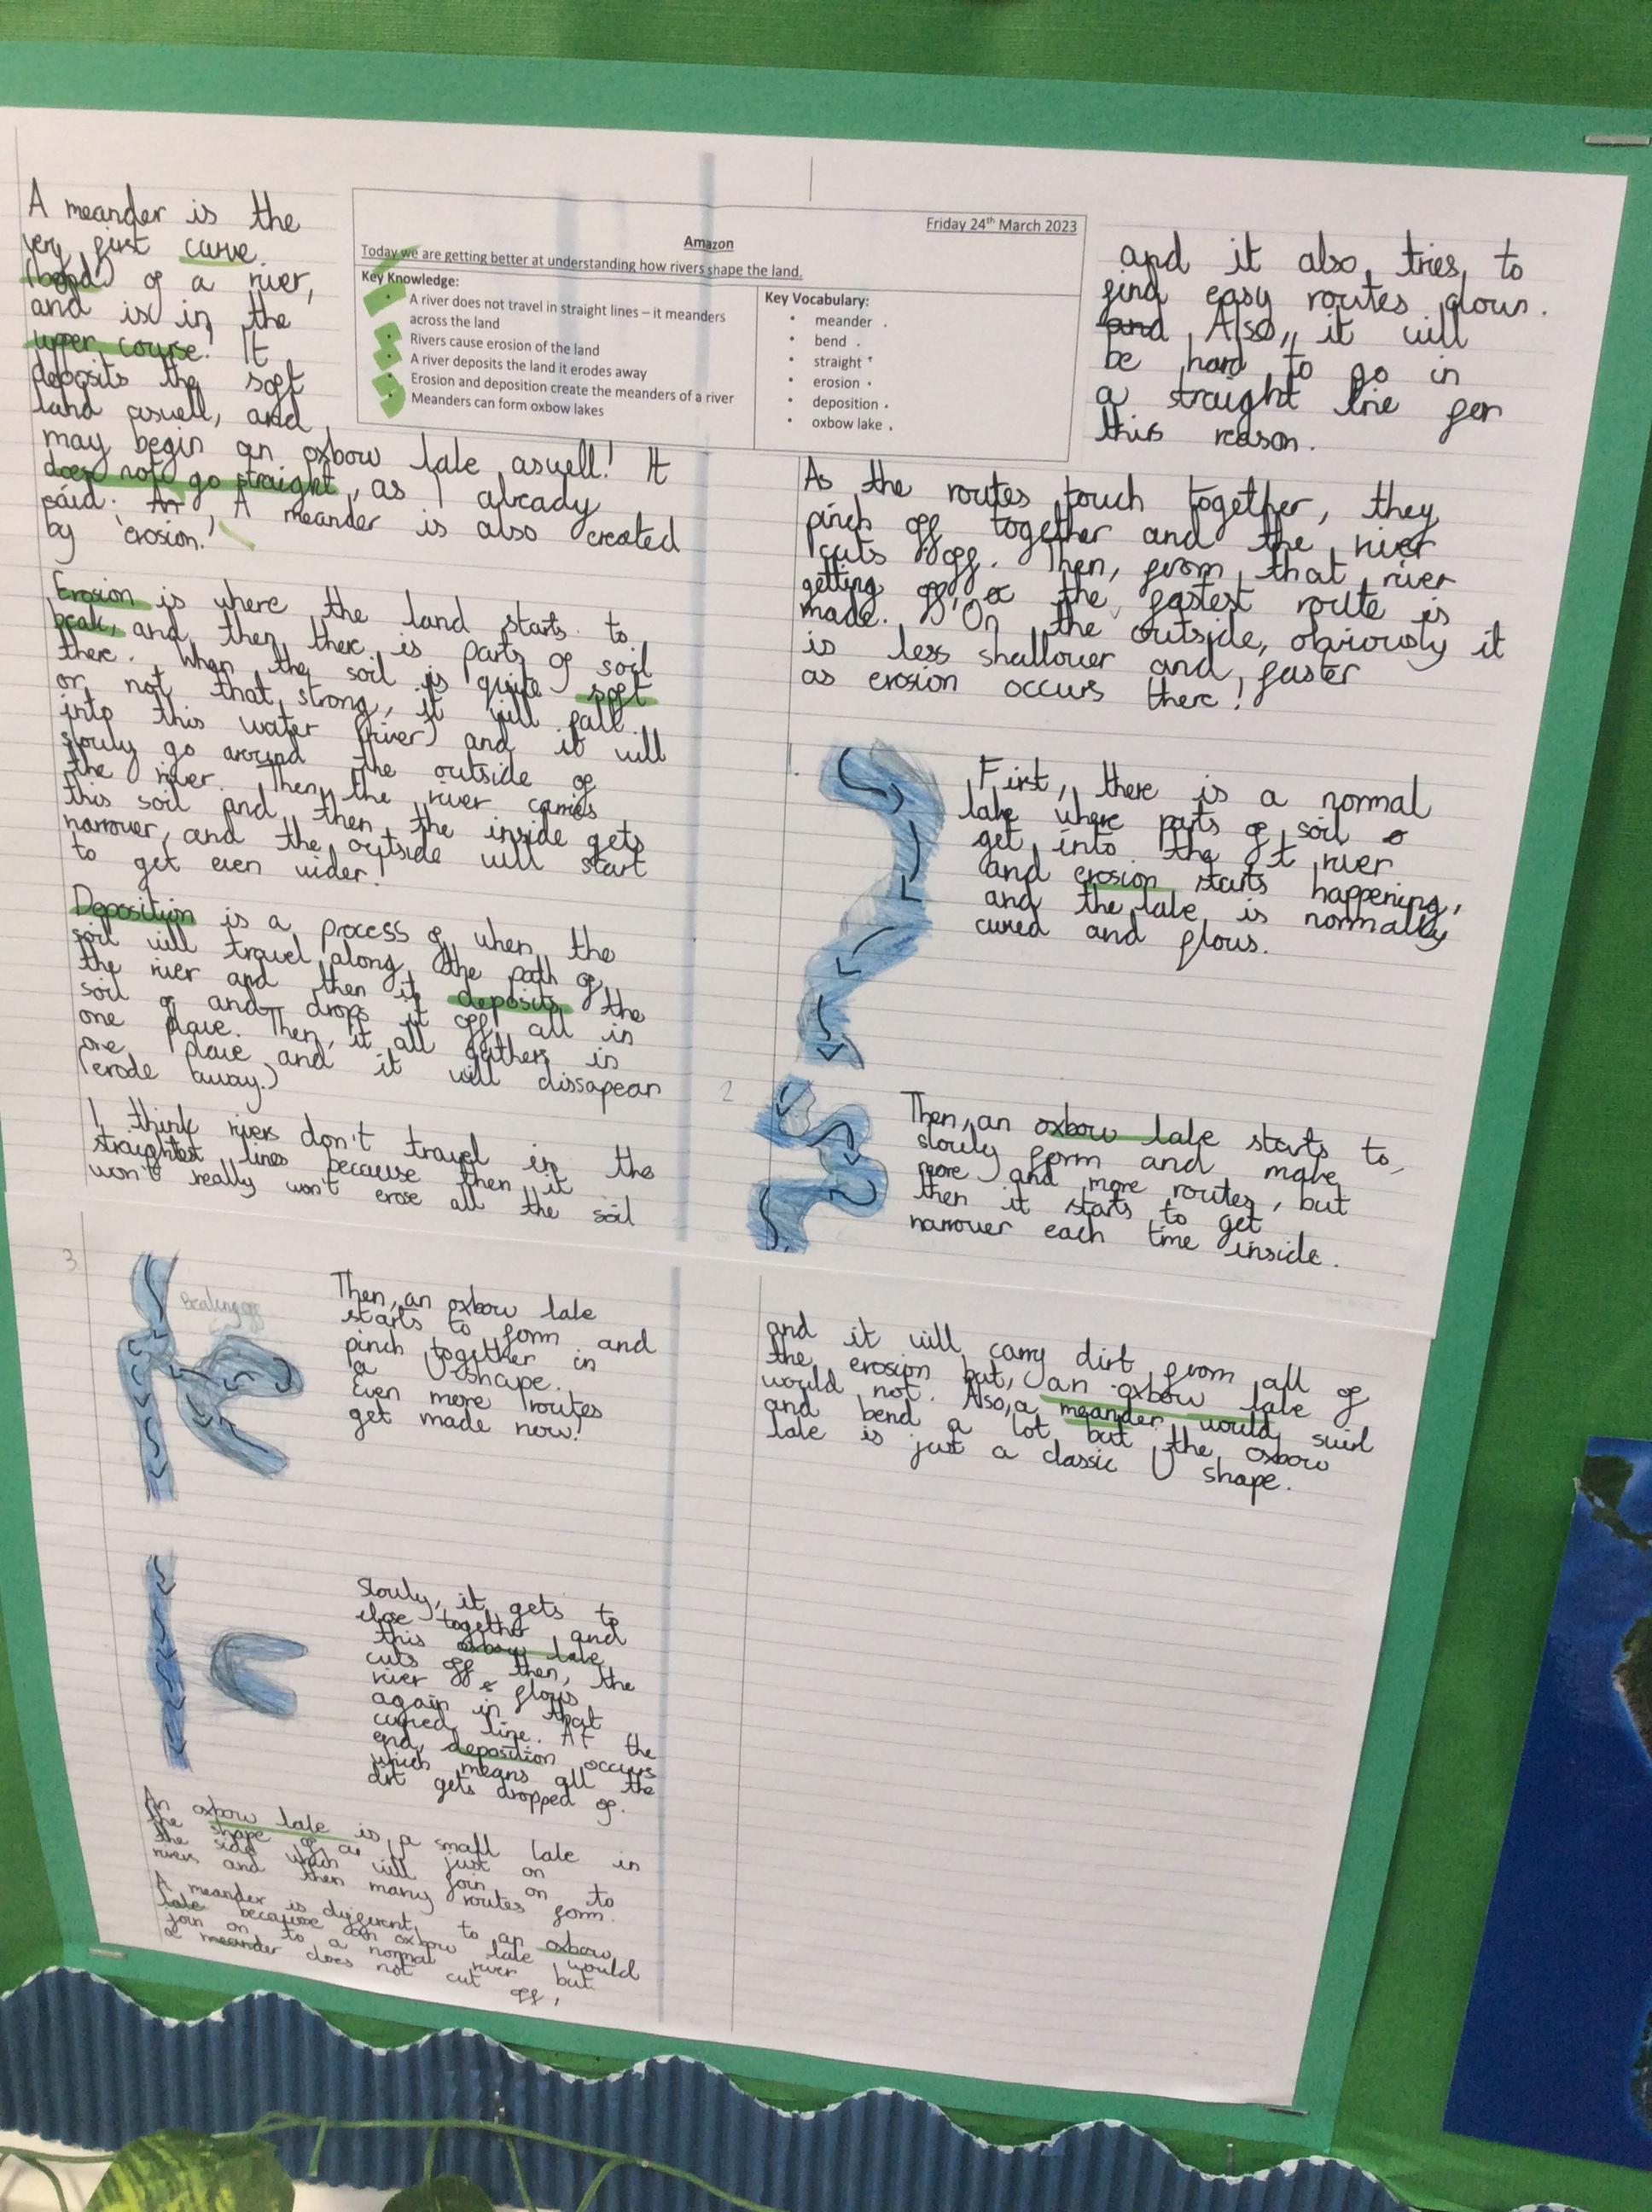 Friday 24th March 2023
Amazon
Today we are getting better at understanding how rivers shape the land.
Key Knowledge:
• A river does not travel in straight lines – it meanders
across the land
• Rivers cause erosion of the land
• A river deposits the land it erodes away
• Erosion and deposition create the meanders of a river
• Meanders can form oxbow lakes
Key Vocabulary:
• meander
• bend
• straight
• erosion
• deposition
• oxbow lake
A meander is the
very first curve
(bend) of a river,
and is in the
upper course! It
deposits the soft
land aswell, and
may begin an oxbow lake aswell! It
does not go straight, as I already
said. A meander is also created
by 'erosion.'
Erosion is where the land starts to
beak, and then there is parts of soil
there. When the soil is quite soft
or not that strong, it will fall
into this water (river) and it will
slowly go around the outside of
the river. Then, the river carries
this soil and then the inside gets
narrower, and the outside will start
to get even wider!
Deposition is a process of when the
soil will travel along the path of
the river and then it deposits the
soil of and drops it off all in
one place. Then, it all gathers in
one place and it will dissapear
(erode away.)
I think rivers don't travel in the
straightest lines because then it
won't really won't erose all the soil
and it also tries to
find easy routes
and Also, it will
be hard to go in
a straight line for
this reason.
As the routes touch together, they
pinch off together and the river
cuts off. Then, from that river
getting off the fastest route is
made. On the outside, obviously it
is less shallower and faster
as erosion occurs there!
1.
First, there is a normal
lake where parts of soil
get into the river
and erosion starts happening,
and the lake is normally
cured and flows.
2
Then, an oxbow lake starts to
slowly form and make
more and more routes, but
then it starts to get
narrower each time inside.
3
Then, an oxbow lake
starts to form and
pinch together in
a U shape.
Even more routes
get made now!
Slowly, it gets to
close together and
this oxbow lake
cuts off then, the
river off flows
again in that
curved line. At the
end, deposition occurs
which means all the
dirt gets dropped of.
An oxbow lake is a small lake in
the shape of a
the side which will just on
join on to
rivers and then many routes form.
A meander is different to an oxbow
lake because an oxbow lake would
join on to a normal river but
a meander does not cut off,
and it will carry dirt from all of
the erosion but, an oxbow lake
would not. Also, a meander would swirl
and bend a lot but the oxbow
lake is just a classic U shape.